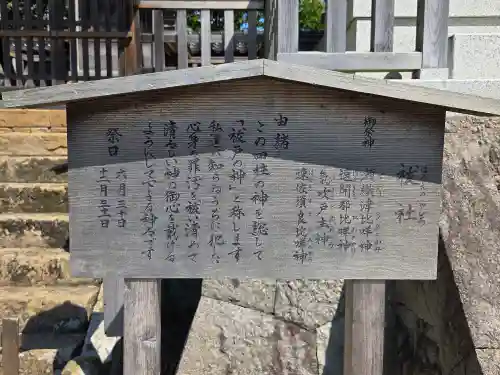 祓社
御祭神
瀬織津比咩神
速開都比咩神
気吹戸主神
速佐須良比咩神
由緒
この四柱の神を総して
「祓戸の神」と称します
私達が知らぬうちに犯した
心身の罪穢を祓い清めて
清らかな神の御心を戴ける
ようにして下さる神様です
祭日
六月三十日
十二月三十一日